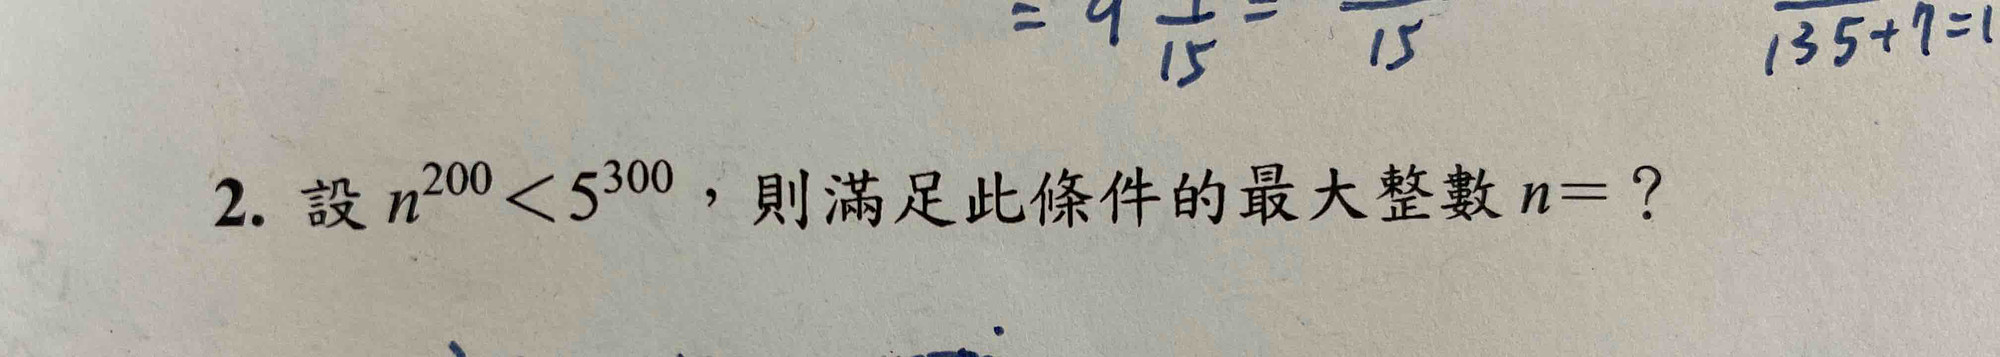 = 9 1/15 = 15
135+7=1
2. 設 n²⁰⁰<5³⁰⁰，則滿足此條件的最大整數 n=？